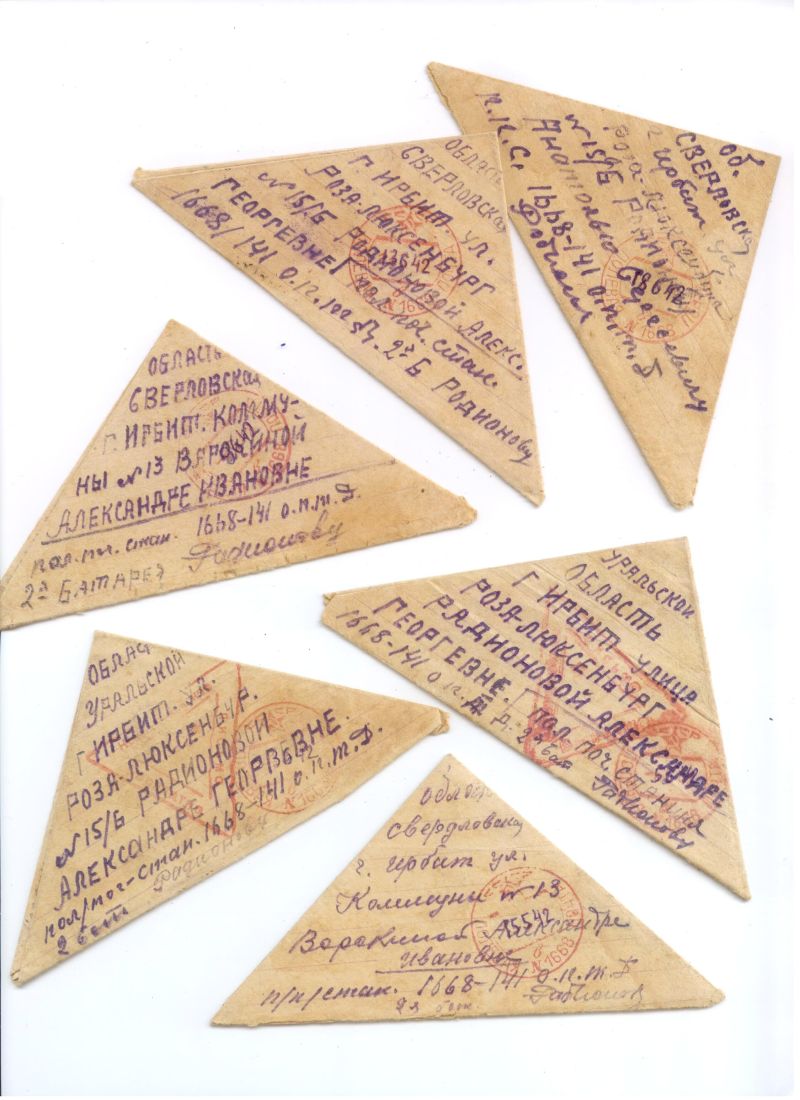 ОБ.
СВЕРДОВСКАЯ
г Ирбит ул
РОЗА-ЛЮКСЕНБУРГ
№15/Б
Анатолью Сергеевичу
П.П.С. 1668-141 о.п.т.Д
18642
№1668
ОБЛАСТЬ
СВЕРЛОВСКАЯ
Г. ИРБИТ УЛ.
РОЗА ЛЮКСЕНБУРГ
№15/Б РОДИОНОВОЙ АЛЕКС.
ГЕОРГЕВНЕ пол.поч.стан.
1668/141 2й Б РОДИОНОВУ
13642
№1668
ОБЛАСТЬ
СВЕРЛОВСКАЯ
Г. ИРБИТ. КОММУ-
НЫ №13 ВАРАКИНОЙ
АЛЕКСАНДРЕ ИВАНОВНЕ
пол.поч.стан. 1668-141 о.п.т.Д.
2я БАТАРЕЯ Радионову
УРАЛЬСКОЙ
ОБЛАСТЬ
Г ИРБИТ УЛИЦА
РОЗА-ЛЮКСЕНБУРГ
РАДИОНОВОЙ АЛЕКСАНДРЕ
ГЕОРГЕВНЕ ПОЛ ПОЧ. СТАНЦИЯ
1668-141 Радионову
ОБЛАС
УРАЛЬСКОЙ
Г ИРБИТ. УЛ.
РОЗА-ЛЮКСЕНБУР.
№15/Б РАДИОНОВОЙ
АЛЕКСАНДРЕ ГЕОРГЕВНЕ.
пол/поч-стан. 1668-141 о.п.т.Д.
2 бат Радионову
област
свердловская
г. Ирбит ул.
Коммуны №13
Варакиной Александре
Ивановне
п/п/стан. 1668-141 о.п.т.Д
2я бат. Радионову
15542
№1668